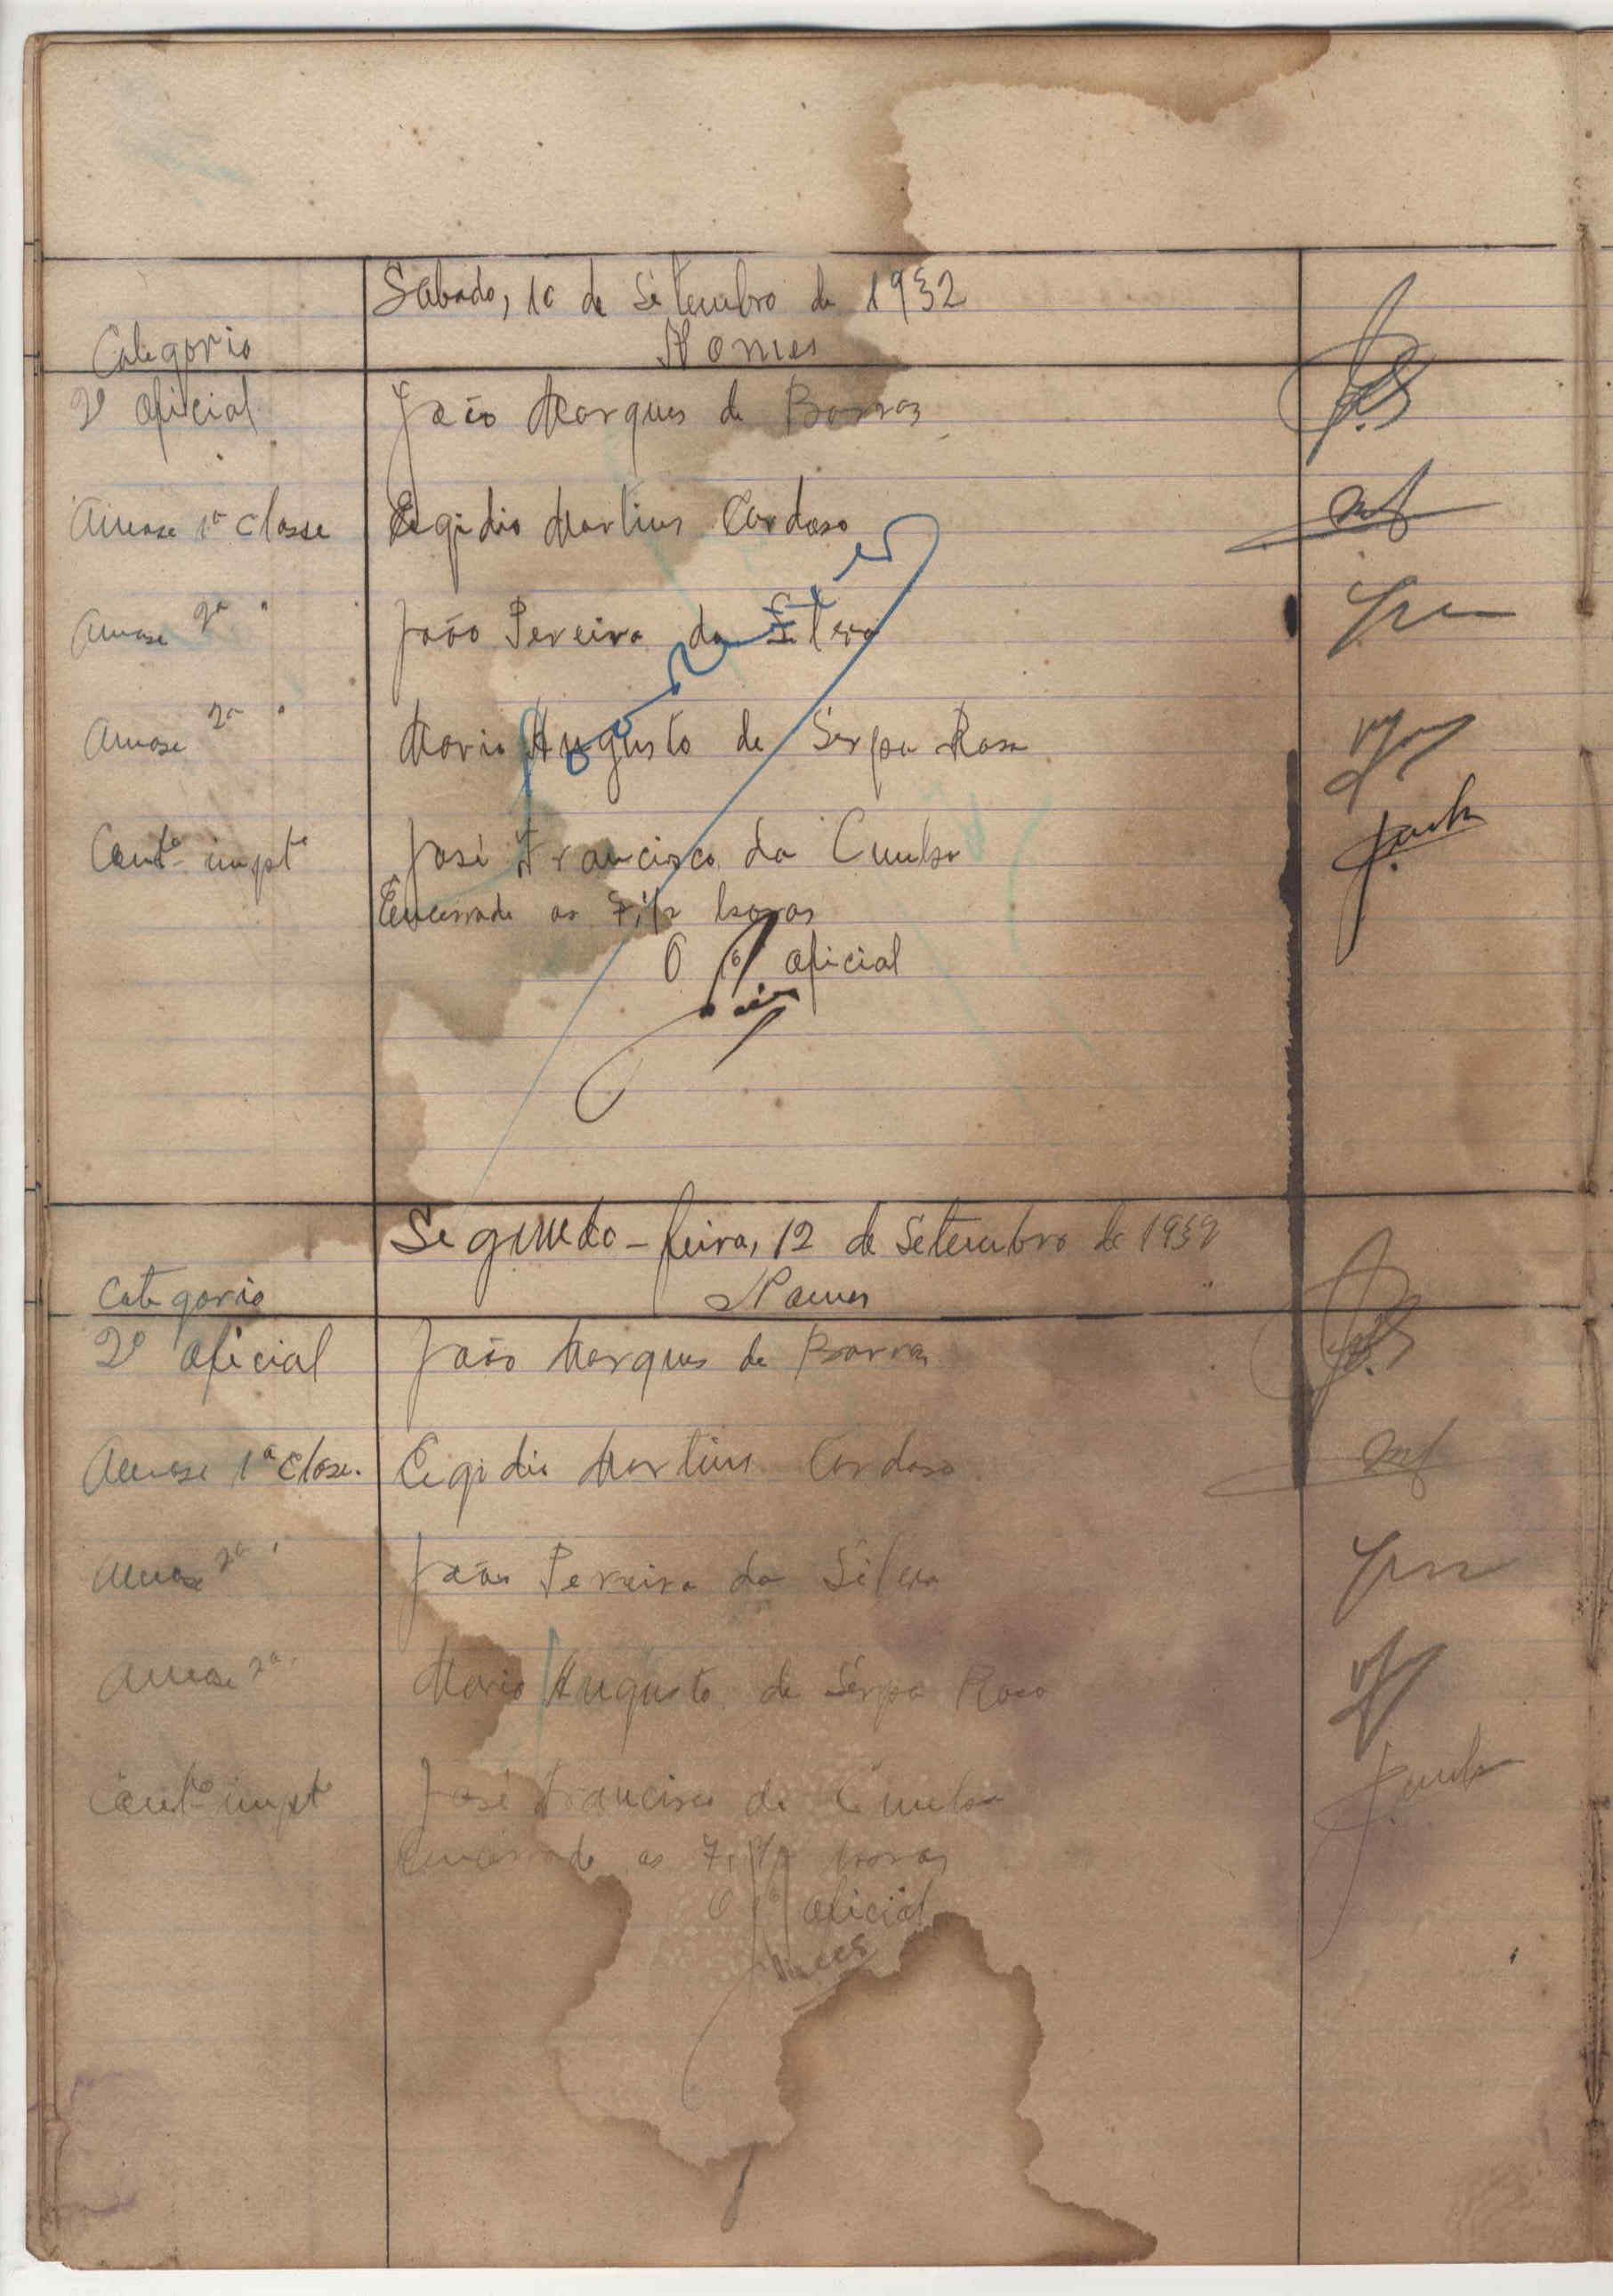 Sabado, 10 de Setembro de 1932
Categoria Nomes
2º Oficial João Marques de Barros
1ª Classe Egidio Martins Cardoso
2ª " João Pereira da Silva
2ª " Mario Augusto de Serpa Rosa
Contº impt.º José Francisco da Cunha
Encerrado as 7,1/2 horas
O 1º Oficial
Segunda-feira, 12 de Setembro de 1932
Categoria Nomes
2º Oficial João Marques de Barros
1ª Classe. Egidio Martins Cardoso
2ª " João Pereira da Silva
2ª " Mario Augusto de Serpa Rosa
Contº impt.º José Francisco da Cunha
Encerrado as 7,1/2 horas
O 1º Oficial